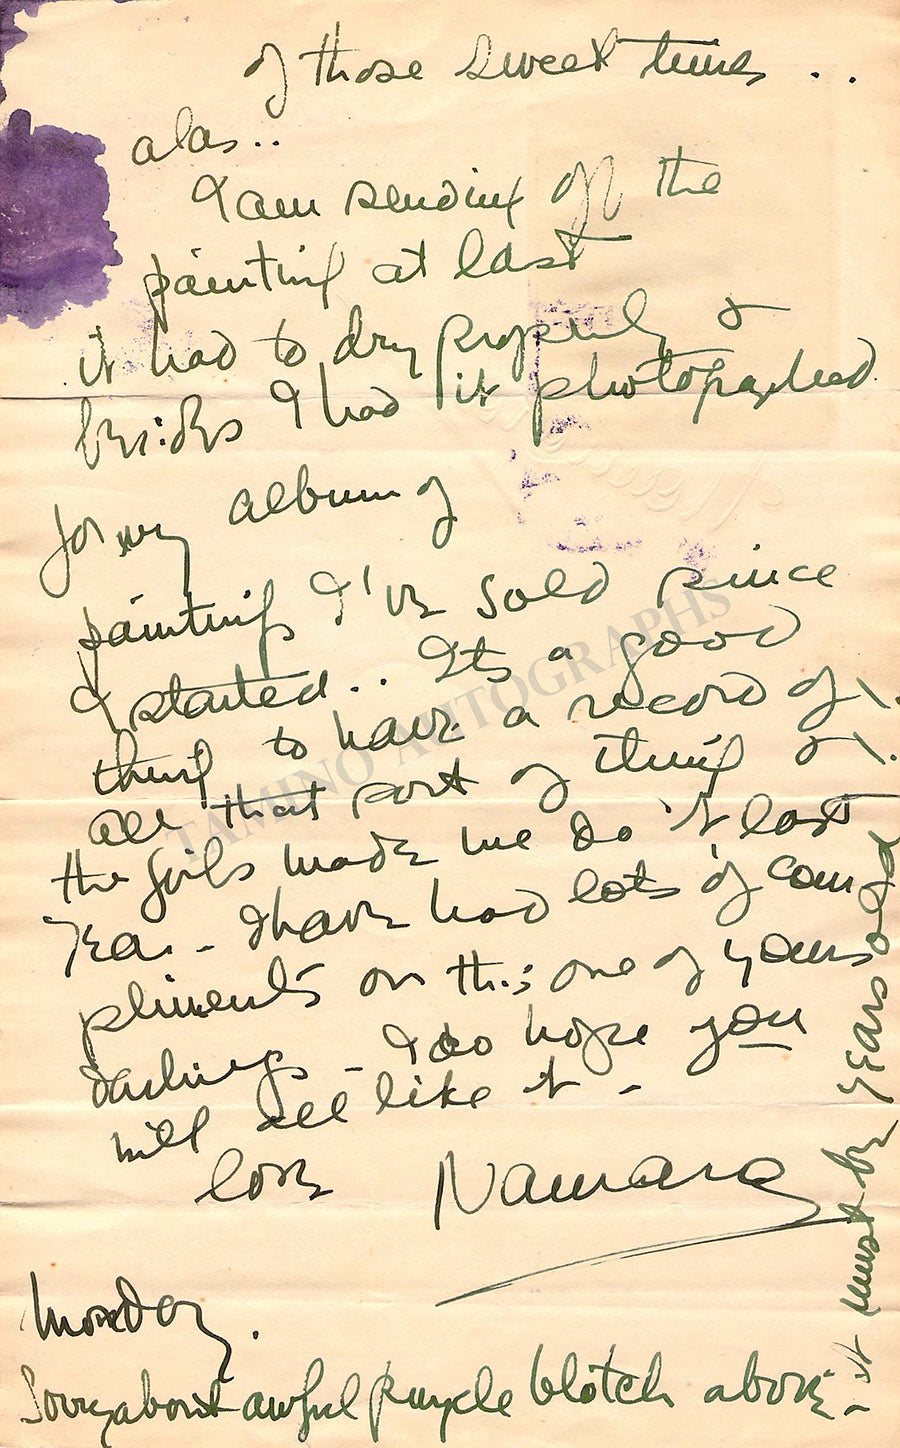 of those sweet times ..
alas..
I am sending off the
painting at last
it had to dry properly &
besides I had it photographed
for my album of
paintings I've sold since
I started.. Its a good
thing to have a record of
all that sort of thing &
the girls made me do it last
Year - I have had lots of com
pliments on this one of yours
darlings - I do hope you
will all like it -
love Namara
Monday.
Sorry about awful purple blotch above -
it must be years old
TAMINO AUTOGRAPHS